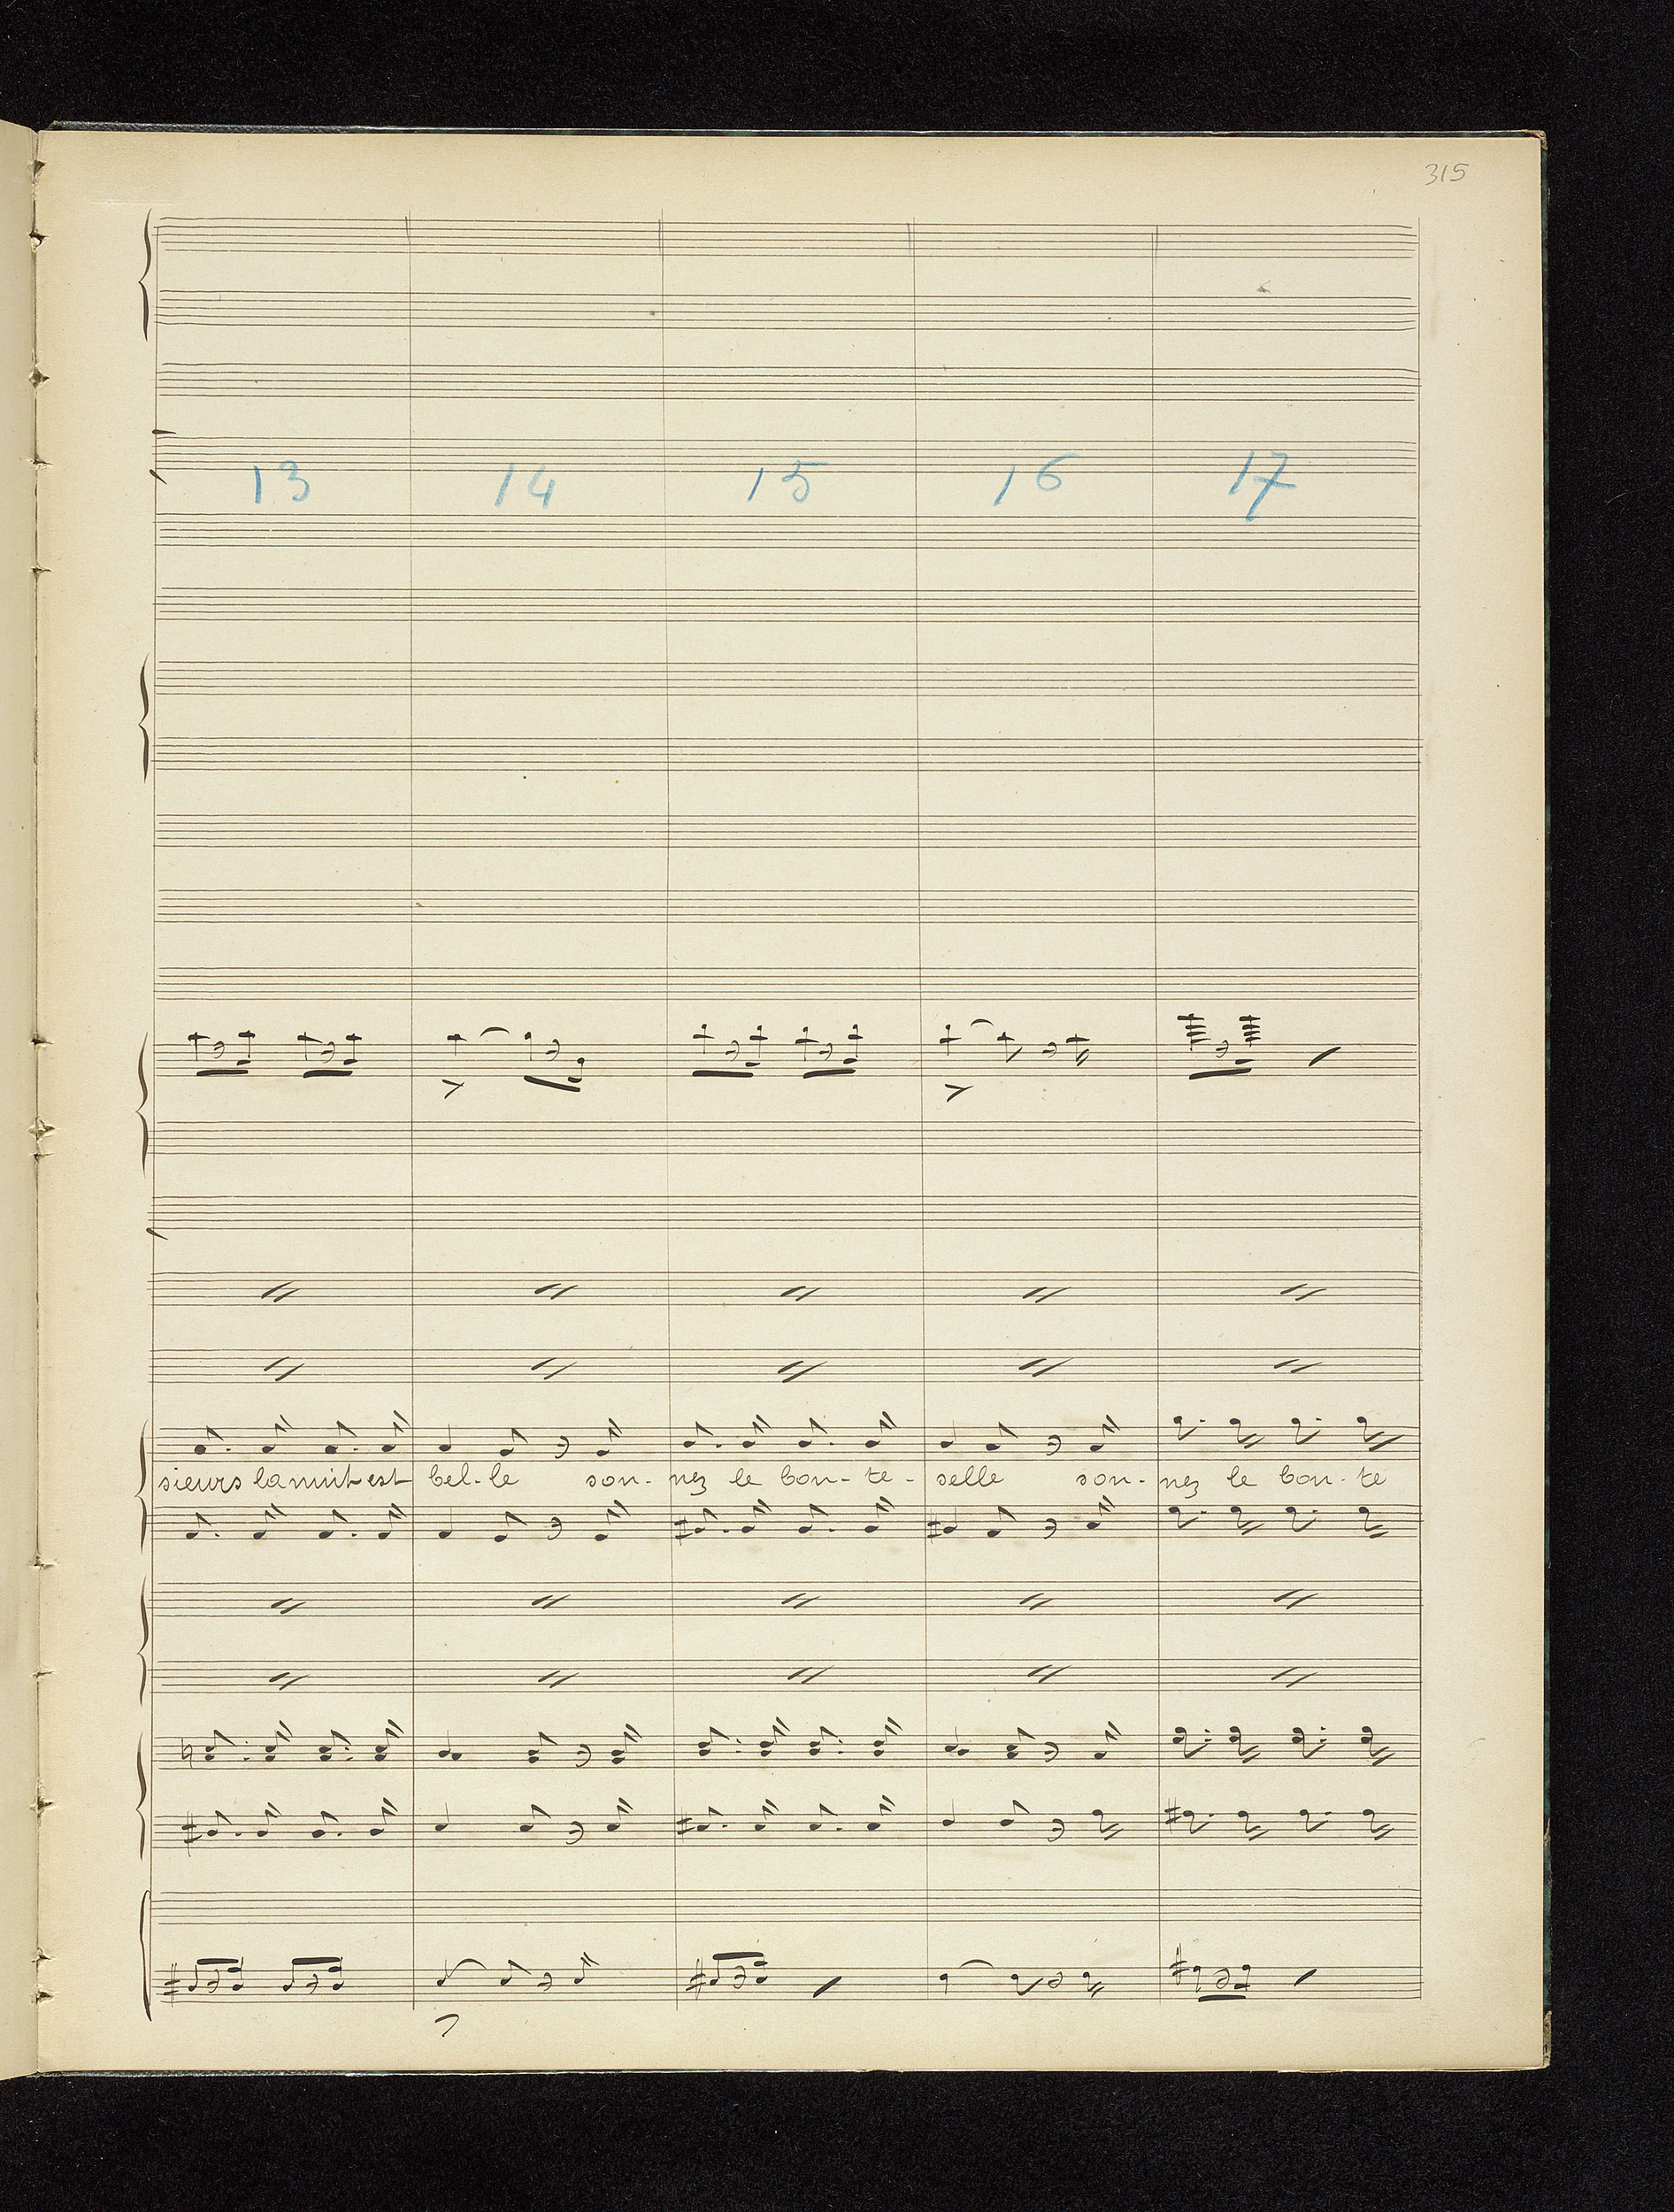 315
13 14 15 16 17
sieurs la nuit est bel-le son-nez le bou-te-selle son-nez le bou-te